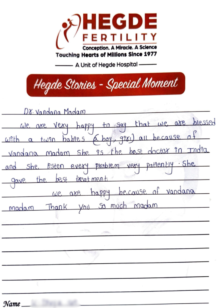 HEGDE
FERTILITY
Conception. A Miracle. A Science
Touching Hearts of Millions Since 1977
A Unit of Hegde Hospital
Hegde Stories - Special Moment
DR Vandana Madam
We are Very happy to say that we are blessed
with a twin babies (boy, girl) all because of
vandana madam She is the best doctor in India
and She listen every problem very patiently. She
gave the best treatment.
We are happy because of vandana
madam Thank you So much madam
Name